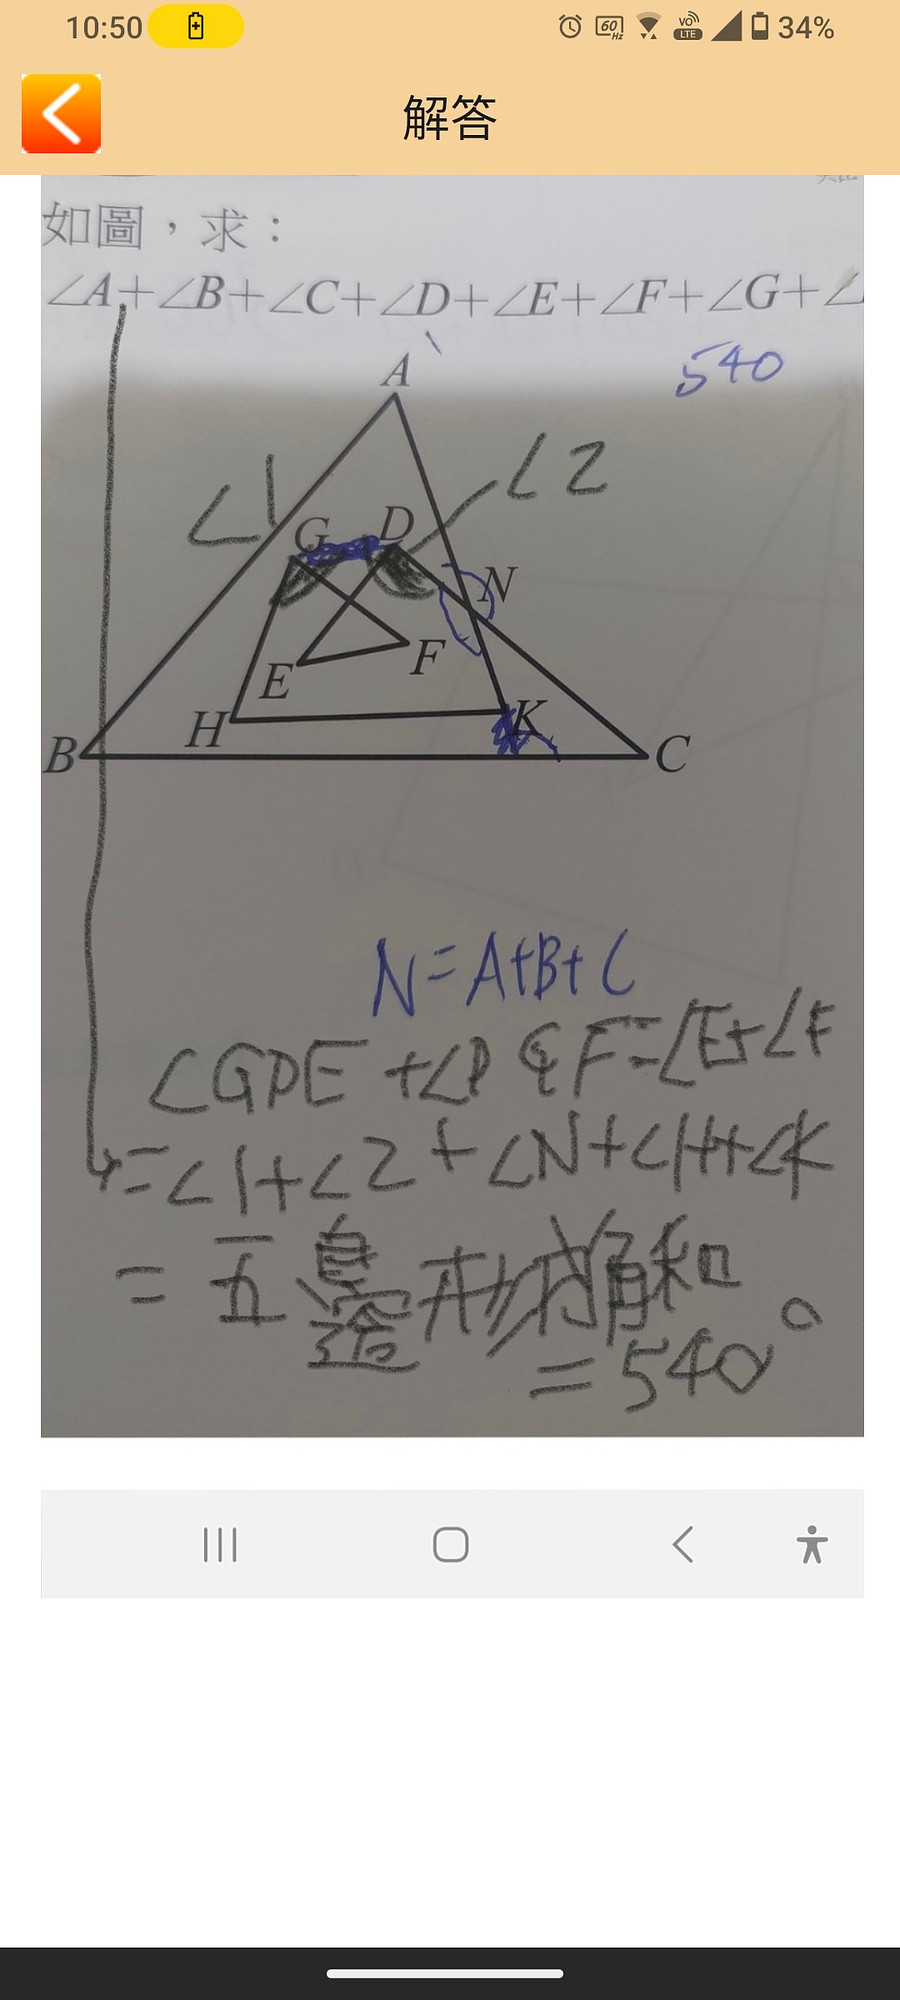 10:50
60
Hz
VO
LTE
34%
解答
如圖，求：
∠A+∠B+∠C+∠D+∠E+∠F+∠G+∠
540
A
∠1
∠2
G
D
N
E
F
H
K
B
C
N=A+B+C
∠GDE+∠DGF=∠E+∠F
=∠1+∠2+∠N+∠H+∠K
=五邊形內角和
=540°